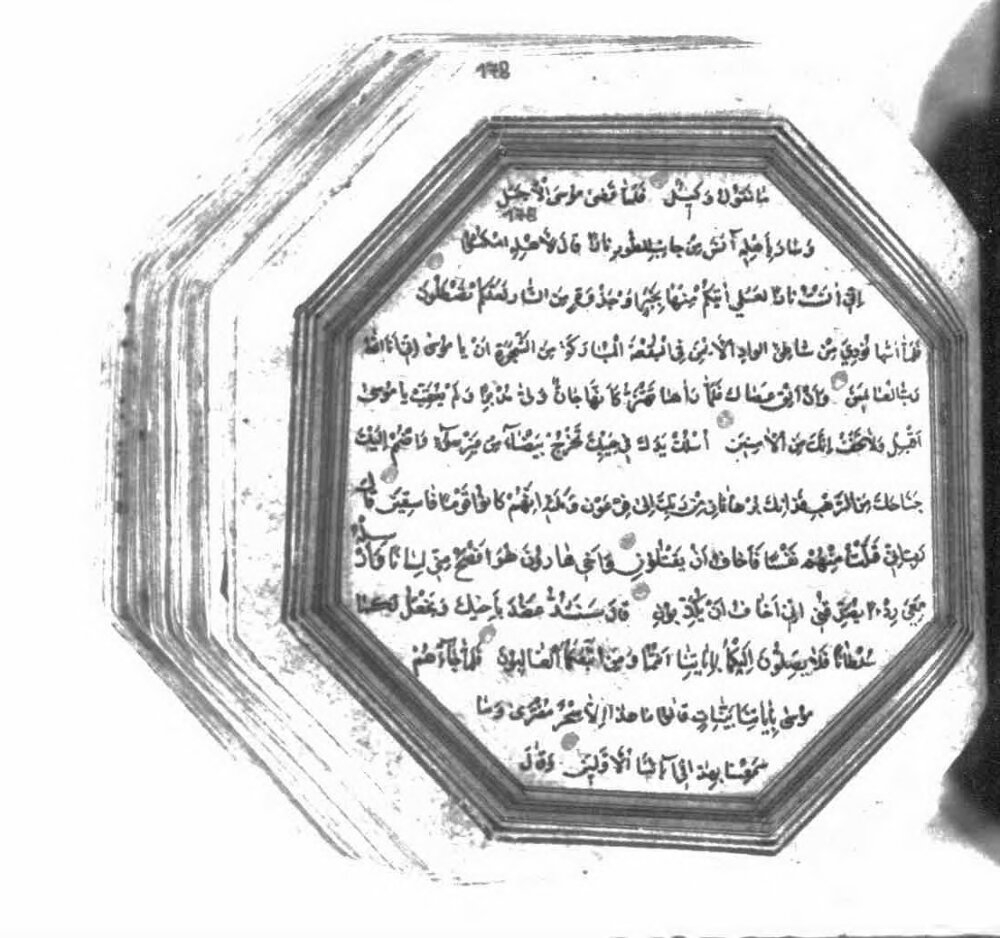 178
مَا نَقُولُ وَكِيلٌ فَلَمَّا قَضٰى مُوسَى الْاَجَلَ
178
وَسَارَ بِاَهْلِهِ آنَسَ مِنْ جَانِبِ الطُّورِ نَارًا قَالَ لِاَهْلِهِ امْكُثُوا
اِنِّي آنَسْتُ نَارًا لَعَلِّي آتِيكُمْ مِنْهَا بِخَبَرٍ اَوْ جَذْوَةٍ مِنَ النَّارِ لَعَلَّكُمْ تَصْطَلُونَ
فَلَمَّا اَتٰيهَا نُودِيَ مِنْ شَاطِئِ الْوَادِ الْاَيْمَنِ فِي الْبُقْعَةِ الْمُبَارَكَةِ مِنَ الشَّجَرَةِ اَنْ يَا مُوسٰى اِنِّي اَنَا اللهُ
رَبُّ الْعَالَمِينَ وَاَنْ اَلْقِ عَصَاكَ فَلَمَّا رَآهَا تَهْتَزُّ كَاَنَّهَا جَانٌّ وَلّٰى مُدْبِرًا وَلَمْ يُعَقِّبْ يَا مُوسٰى
اَقْبِلْ وَلَا تَخَفْ اِنَّكَ مِنَ الْاٰمِنِينَ اُسْلُكْ يَدَكَ فِي جَيْبِكَ تَخْرُجْ بَيْضَآءَ مِنْ غَيْرِ سُوٓءٍ وَاضْمُمْ اِلَيْكَ
جَنَاحَكَ مِنَ الرَّهْبِ فَذَانِكَ بُرْهَانَانِ مِنْ رَبِّكَ اِلٰى فِرْعَوْنَ وَمَلَئِهِ اِنَّهُمْ كَانُوا قَوْمًا فَاسِقِينَ قَالَ
رَبِّ اِنِّي قَتَلْتُ مِنْهُمْ نَفْسًا فَاَخَافُ اَنْ يَقْتُلُونِ وَاَخِي هَارُونُ هُوَ اَفْصَحُ مِنِّي لِسَانًا فَاَرْسِلْهُ
مَعِيَ رِدْءًا يُصَدِّقُنِي اِنِّي اَخَافُ اَنْ يُكَذِّبُونِ قَالَ سَنَشُدُّ عَضُدَكَ بِاَخِيكَ وَنَجْعَلُ لَكُمَا
سُلْطَانًا فَلَا يَصِلُونَ اِلَيْكُمَا بِاٰيَاتِنَا اَنْتُمَا وَمَنِ اتَّبَعَكُمَا الْغَالِبُونَ فَلَمَّا جَآءَهُمْ
مُوسٰى بِاٰيَاتِنَا بَيِّنَاتٍ قَالُوا مَا هٰذَا اِلَّا سِحْرٌ مُفْتَرًى وَمَا
سَمِعْنَا بِهٰذَا فِي اٰبَآئِنَا الْاَوَّلِينَ وَقَالَ